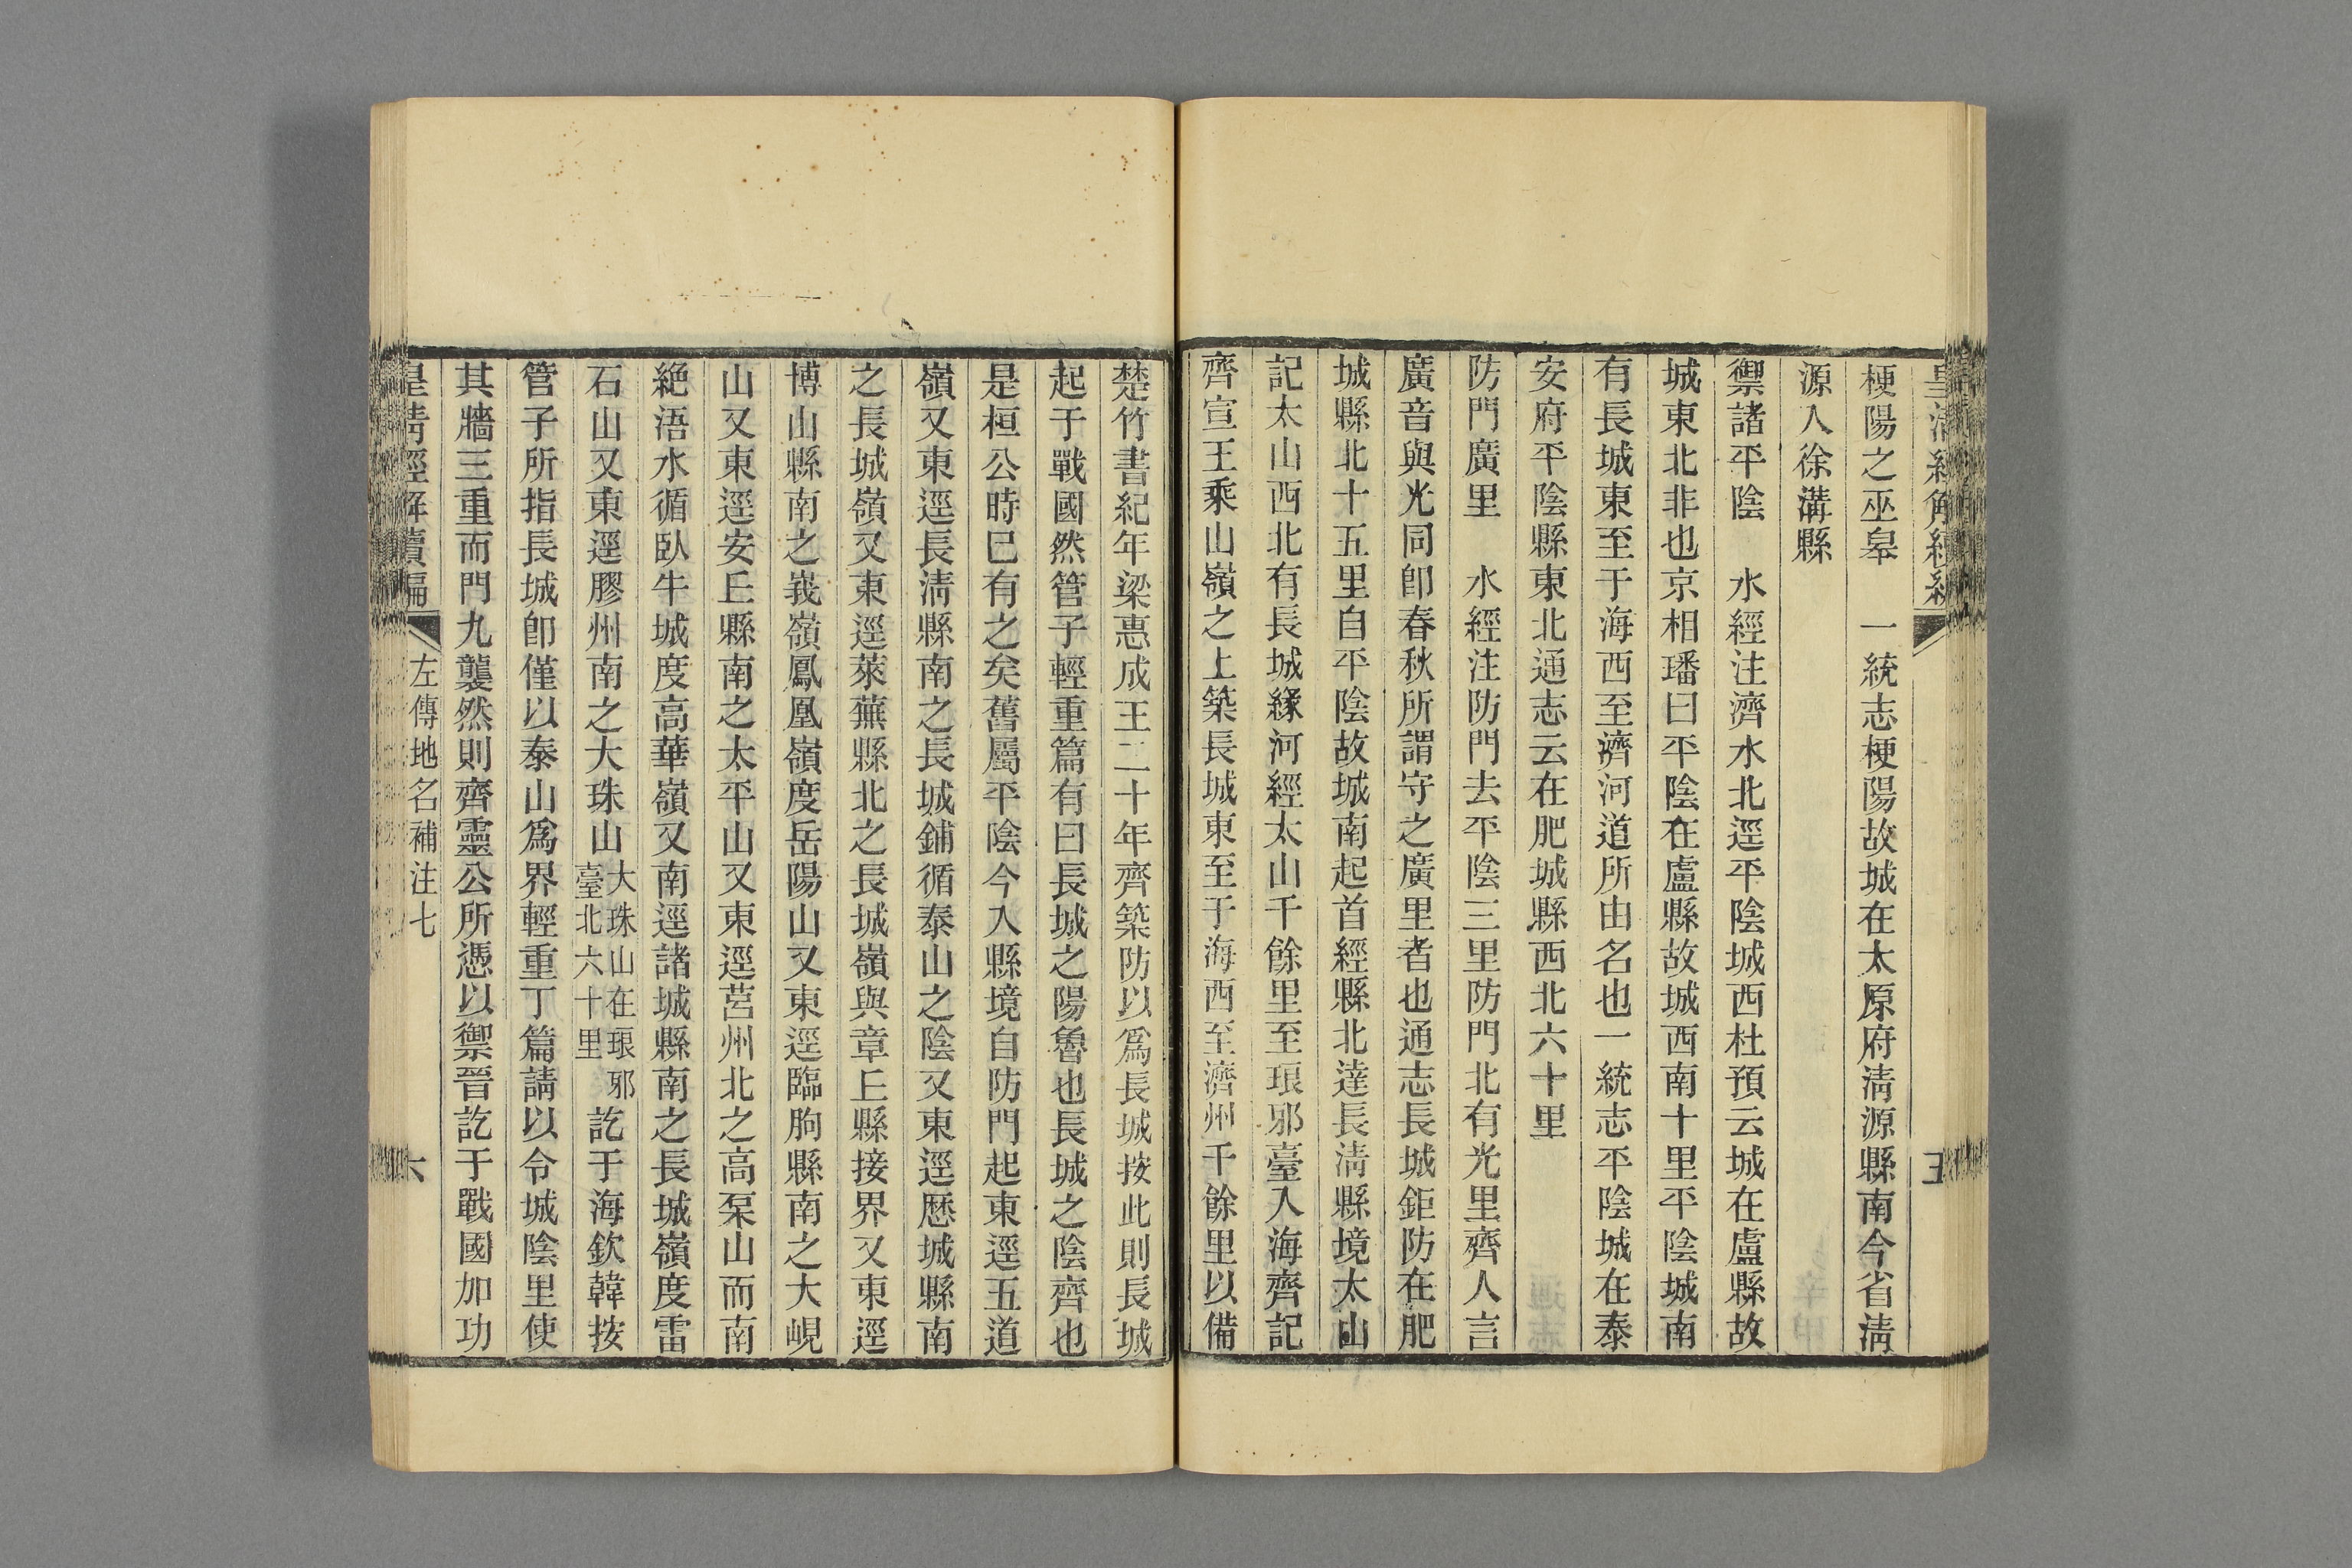 梗陽之巫皋　一統志梗陽故城在太原府淸源縣南今省淸
源入徐溝縣
禦諸平陰　水經注濟水北逕平陰城西杜預云城在盧縣故
城東北非也京相璠曰平陰在盧縣故城西南十里平陰城南
有長城東至于海西至濟河道所由名也一統志平陰城在泰
安府平陰縣東北通志云在肥城縣西北六十里
防門廣里　水經注防門去平陰三里防門北有光里齊人言
廣音與光同卽春秋所謂守之廣里者也通志長城鉅防在肥
城縣北十五里自平陰故城南起首經縣北達長淸縣境太山
記太山西北有長城緣河經太山千餘里至琅邪臺入海齊記
齊宣王乘山嶺之上築長城東至于海西至濟州千餘里以備
楚竹書紀年梁惠成王二十年齊築防以爲長城按此則長城
起于戰國然管子輕重篇有曰長城之陽魯也長城之陰齊也
是桓公時已有之矣舊屬平陰今入縣境自防門起東逕五道
嶺又東逕長淸縣南之長城鋪循泰山之陰又東逕歷城縣南
之長城嶺又東逕萊蕪縣北之長城嶺與章丘縣接界又東逕
博山縣南之峩嶺鳳凰嶺度岳陽山又東逕臨朐縣南之大峴
山又東逕安丘縣南之太平山又東逕莒州北之高䃅山而南
絶浯水循臥牛城度高華嶺又南逕諸城縣南之長城嶺度雷
石山又東逕膠州南之大珠山大珠山在琅邪臺北六十里訖于海欽韓按
管子所指長城卽僅以泰山爲界輕重丁篇請以令城陰里使
其牆三重而門九襲然則齊靈公所憑以禦晉訖于戰國加功
皇淸經解續編　左傳地名補注七　六